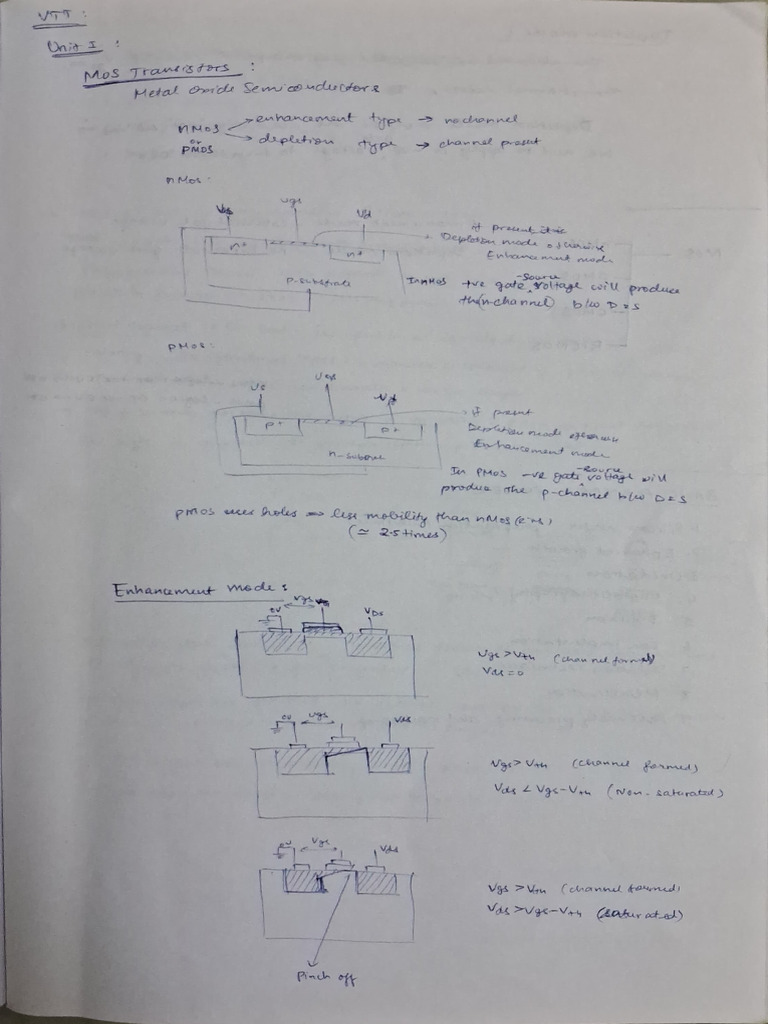 VTT :
Unit I :
MOS Transistors :
Metal Oxide Semiconductors
nMOS → enhancement type → no channel
or
PMOS → depletion type → channel present
nMos:
Vgs Vd
n+ n+
p-substrate
if present
Depletion mode otherwise
Enhancement mode
In nMOS +ve gate-source voltage will produce
the (n-channel) b/w D & S
pMos:
Vs Vgs Vd
p+ p+
if present
Depletion mode otherwise
Enhancement mode
In PMOS -ve gate-source voltage will
produce the p-channel b/w D & S
pMOS uses holes ⇒ less mobility than nMOS (e-s)
(≃ 2.5 times)
Enhancement mode :
0V Vgs VDS
Vgs > Vth (channel formed)
Vds = 0
0V Vgs Vds
Vgs > Vth (channel formed)
Vds < Vgs - Vth (Non-saturated)
0V Vgs Vds
Vgs > Vth (channel formed)
Vds > Vgs - Vth (saturated)
Pinch off